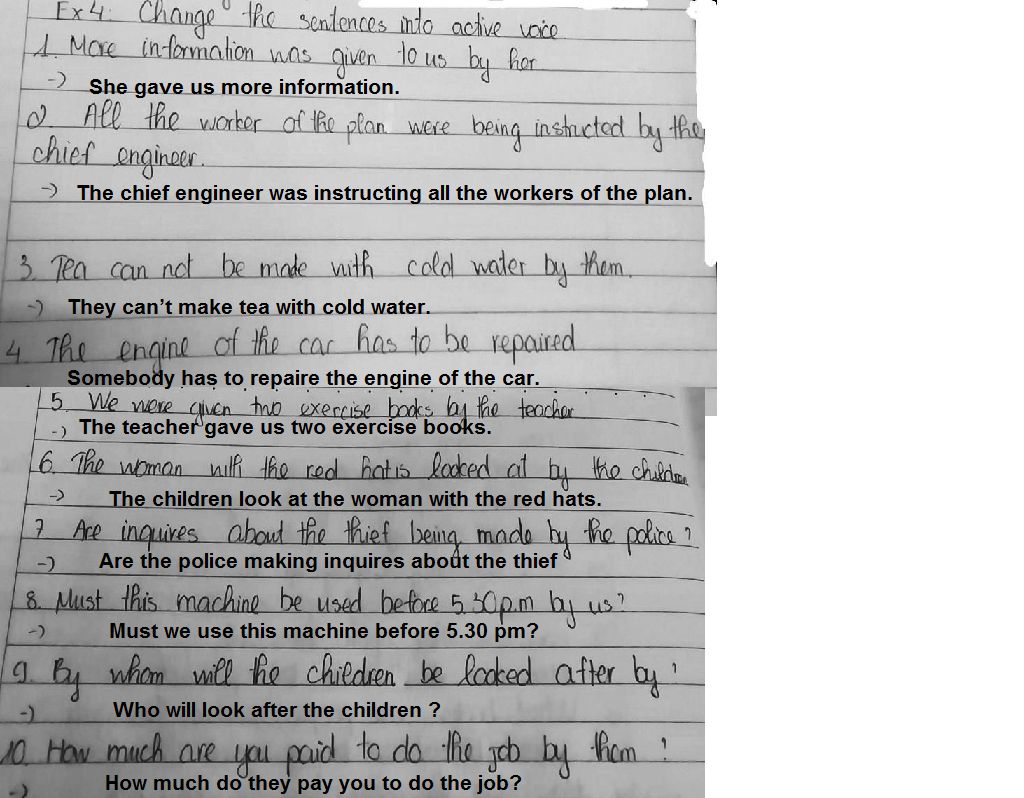 Ex 4: Change the sentences into active voice
1. More information was given to us by her
-) She gave us more information.
2. All the worker of the plan were being instructed by the
chief engineer.
-) The chief engineer was instructing all the workers of the plan.
3. Tea can not be made with cold water by them.
-) They can't make tea with cold water.
4. The engine of the car has to be repaired
Somebody has to repaire the engine of the car.
5. We were given two exercise books by the teacher
-) The teacher gave us two exercise books.
6. The woman with the red hat is looked at by the children
-) The children look at the woman with the red hats.
7. Are inquires about the thief being made by the police?
-) Are the police making inquires about the thief
8. Must this machine be used before 5.30p.m by us?
-) Must we use this machine before 5.30 pm?
9. By whom will the children be looked after by ?
-) Who will look after the children ?
10. How much are you paid to do the job by them ?
-) How much do they pay you to do the job?